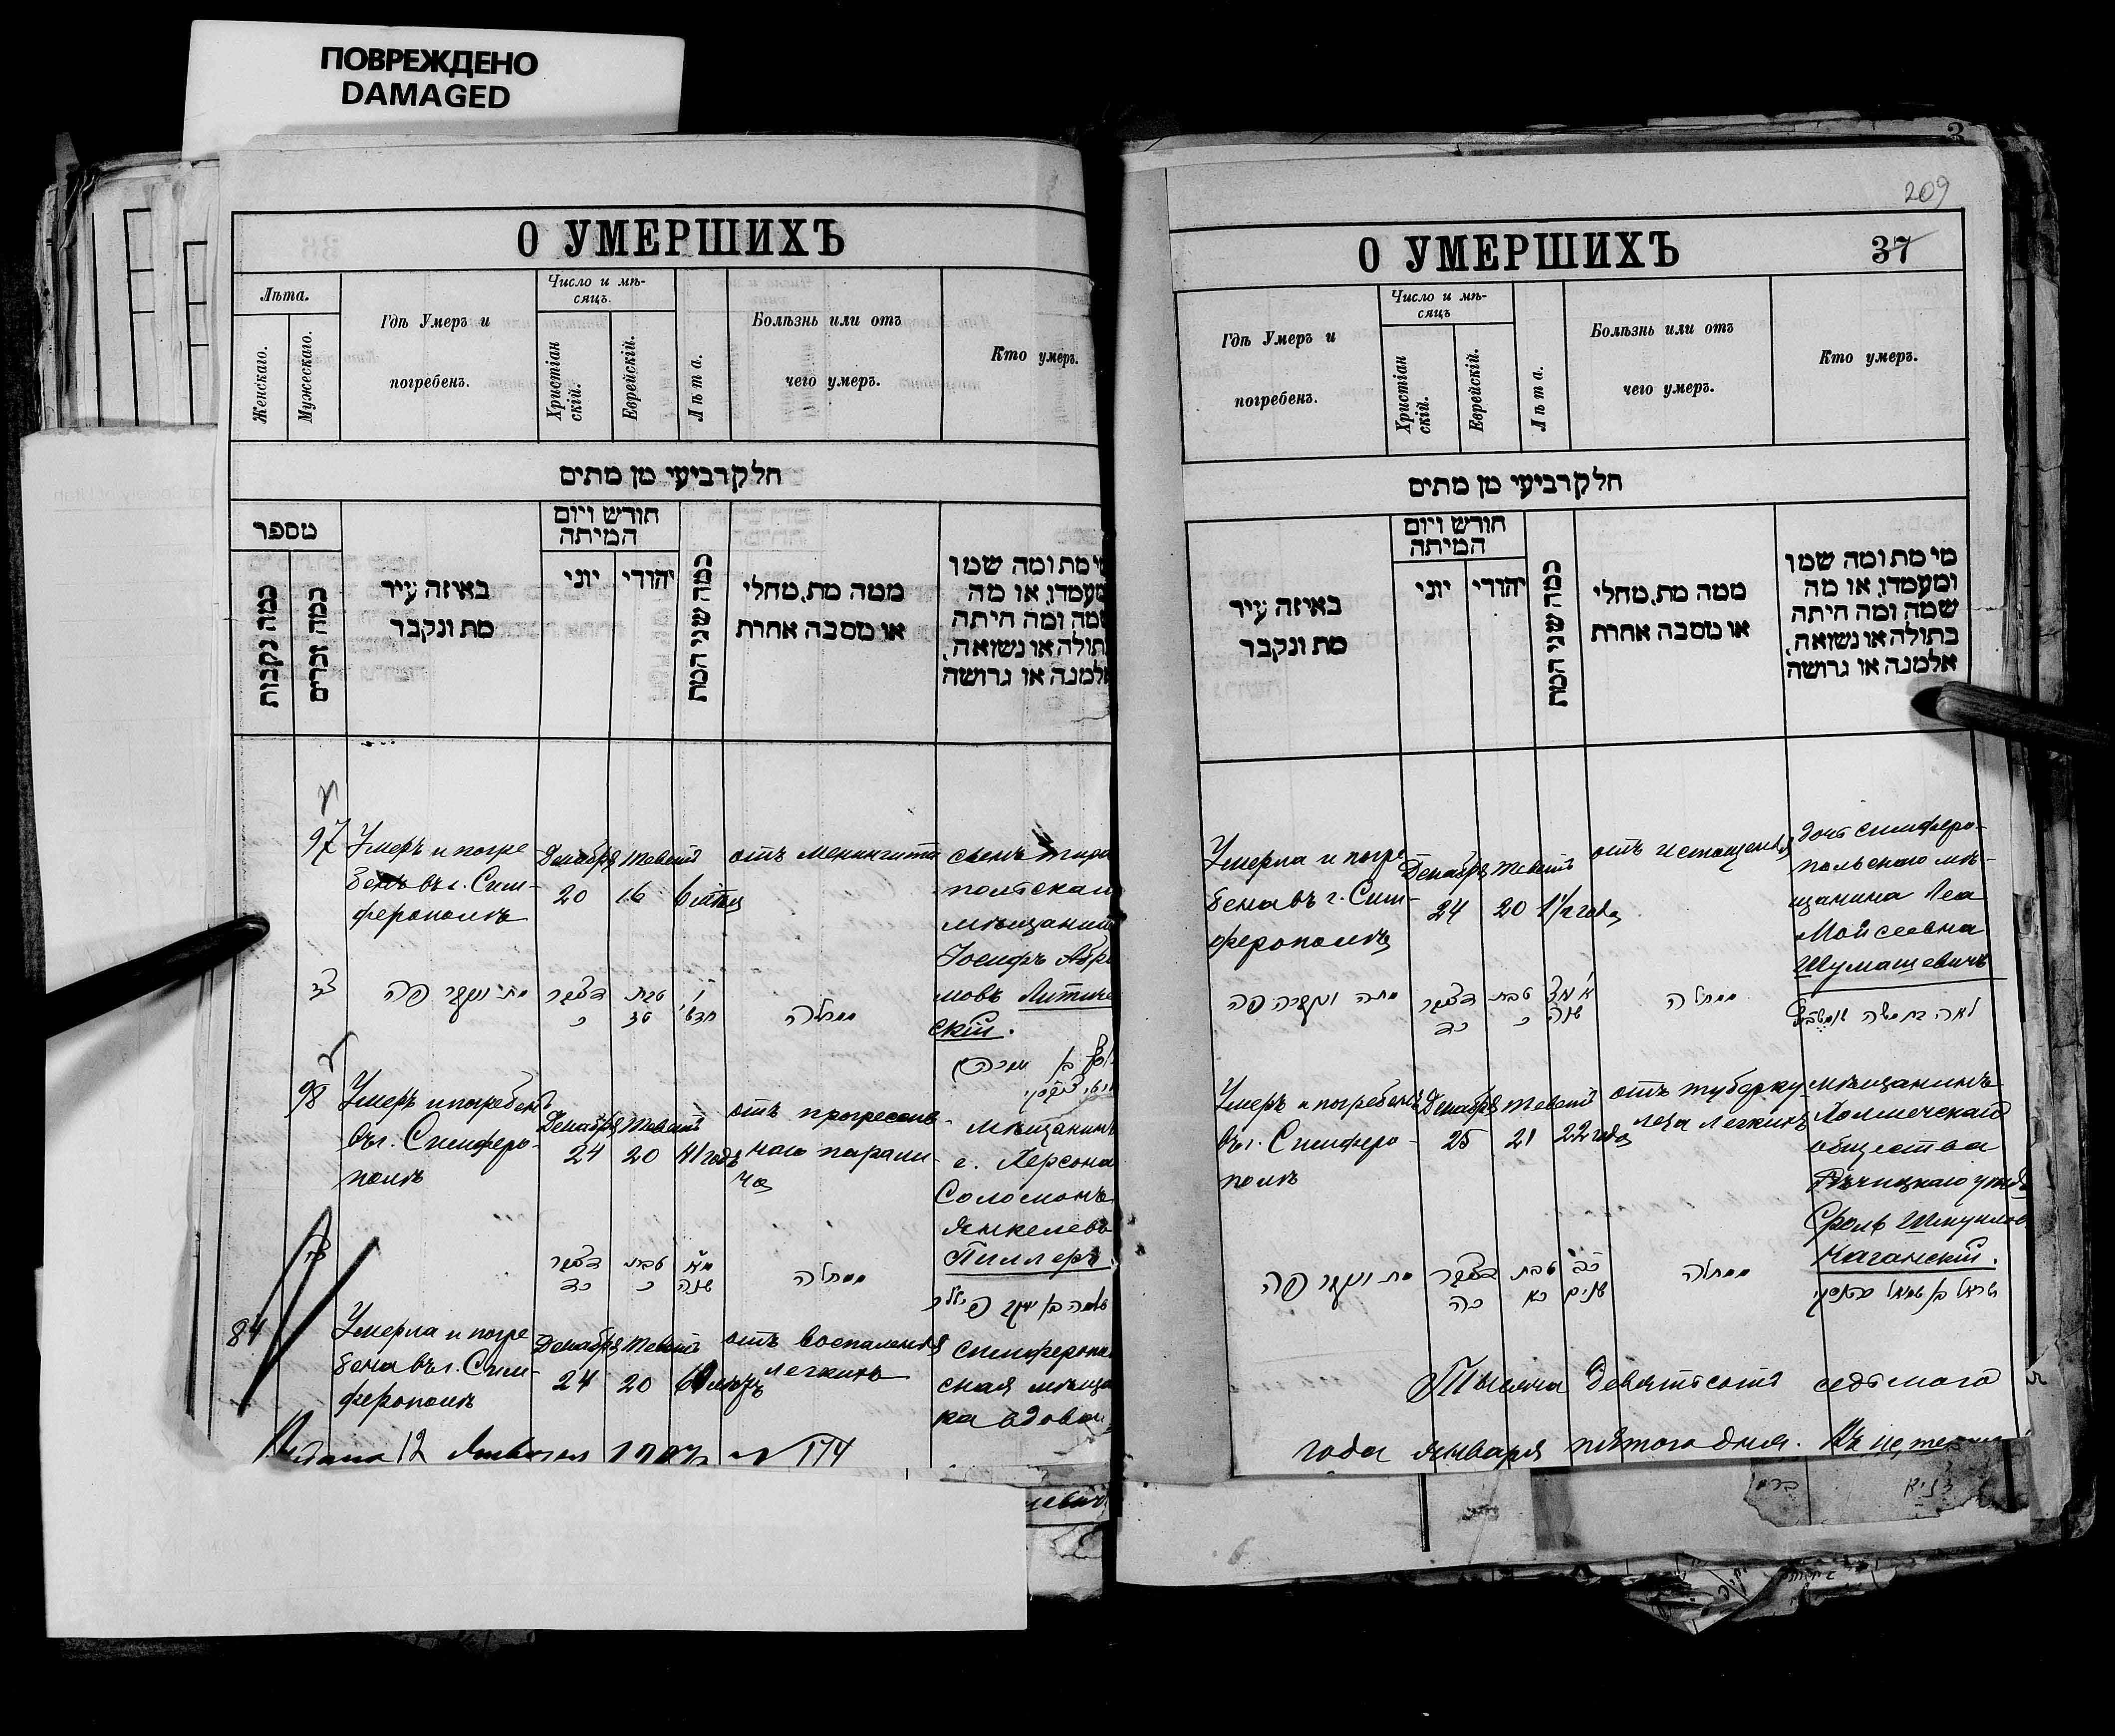 ПОВРЕЖДЕНО
DAMAGED
О УМЕРШИХЪ
Лѣта.
Женскаго.
Мужескаго.
Гдѣ Умеръ и
погребенъ.
Число и мѣ-
сяцъ.
Христіан
скій.
Еврейскій.
Лѣта.
Болѣзнь или отъ
чего умеръ.
Кто умеръ.
חלק רביעי מן מתים
מספר
כמה נקבות
כמה זכרים
באיזה עיר
מת ונקבר
חודש ויום
המיתה
יוני
יהודי
כמה שני המת
ממה מת, מחלי
או מסבה אחרת
מי מת ומה שמו
ומעמדו, או מה
שמה ומה היתה
בתולה או נשואה,
אלמנה או גרושה
97
Умеръ и погре
бенъ въ г. Сим-
ферополѣ
Декабря
20
Тевета
16
6 мѣсяц
отъ менингита
сынъ
мѣщанин
Іосифъ Абра
мовъ
скій.
מת ונקבר פה
דצמבר
כ
טבת
טז
ו׳
חדש׳
ממחלה
98
Умеръ и погребенъ
въ г. Симферо-
полѣ
Декабря
24
Тевета
20
41 годъ
отъ прогрессив-
наго парали-
ча
мѣщанинъ
г. Херсона
Соломонъ
Янкелевъ
Пиллеръ.
דצמבר
כד
טבת
כ
מא
שנה
ממחלה
84
Умерла и погре
бена въ г. Сим-
ферополѣ
Декабря
24
Тевета
20
отъ воспаленія
легкихъ
симферопол
ская мѣща
ка вдова
12 Января 1907 № 174
209
О УМЕРШИХЪ
37
Гдѣ Умеръ и
погребенъ.
Число и мѣ-
сяцъ
Христіан
скій.
Еврейскій.
Лѣта.
Болѣзнь или отъ
чего умеръ.
Кто умеръ.
חלק רביעי מן מתים
באיזה עיר
מת ונקבר
חודש ויום
המיתה
יוני
יהודי
כמה שני המת
ממה מת, מחלי
או מסבה אחרת
מי מת ומה שמו
ומעמדו, או מה
שמה ומה היתה
בתולה או נשואה,
אלמנה או גרושה
Умерла и погре
бена въ г. Сим-
ферополѣ
Декабря
24
Тевета
20
1 1/2 года
отъ истощенія
дочь симферо-
польскаго мѣ-
щанина Леа
Мойсеевна
Шумашевичъ
מתה ונקברה פה
דצמבר
כד
טבת
כ
שנה
ממחלה
לאה בת משה
Умеръ и погребенъ
въ г. Симферо-
полѣ
Декабря
25
Тевета
21
22 года
отъ туберку
леза легкихъ
мѣщанинъ
Холмечскаго
общества
Рѣчицкаго уѣзда
Сроль Шмуилов
Каганскій.
מת ונקבר פה
דצמבר
כה
טבת
כא
כב
שנים
ממחלה
ישראל בן שמואל
Тысяча девятьсотъ седьмого
года января пятого дня.